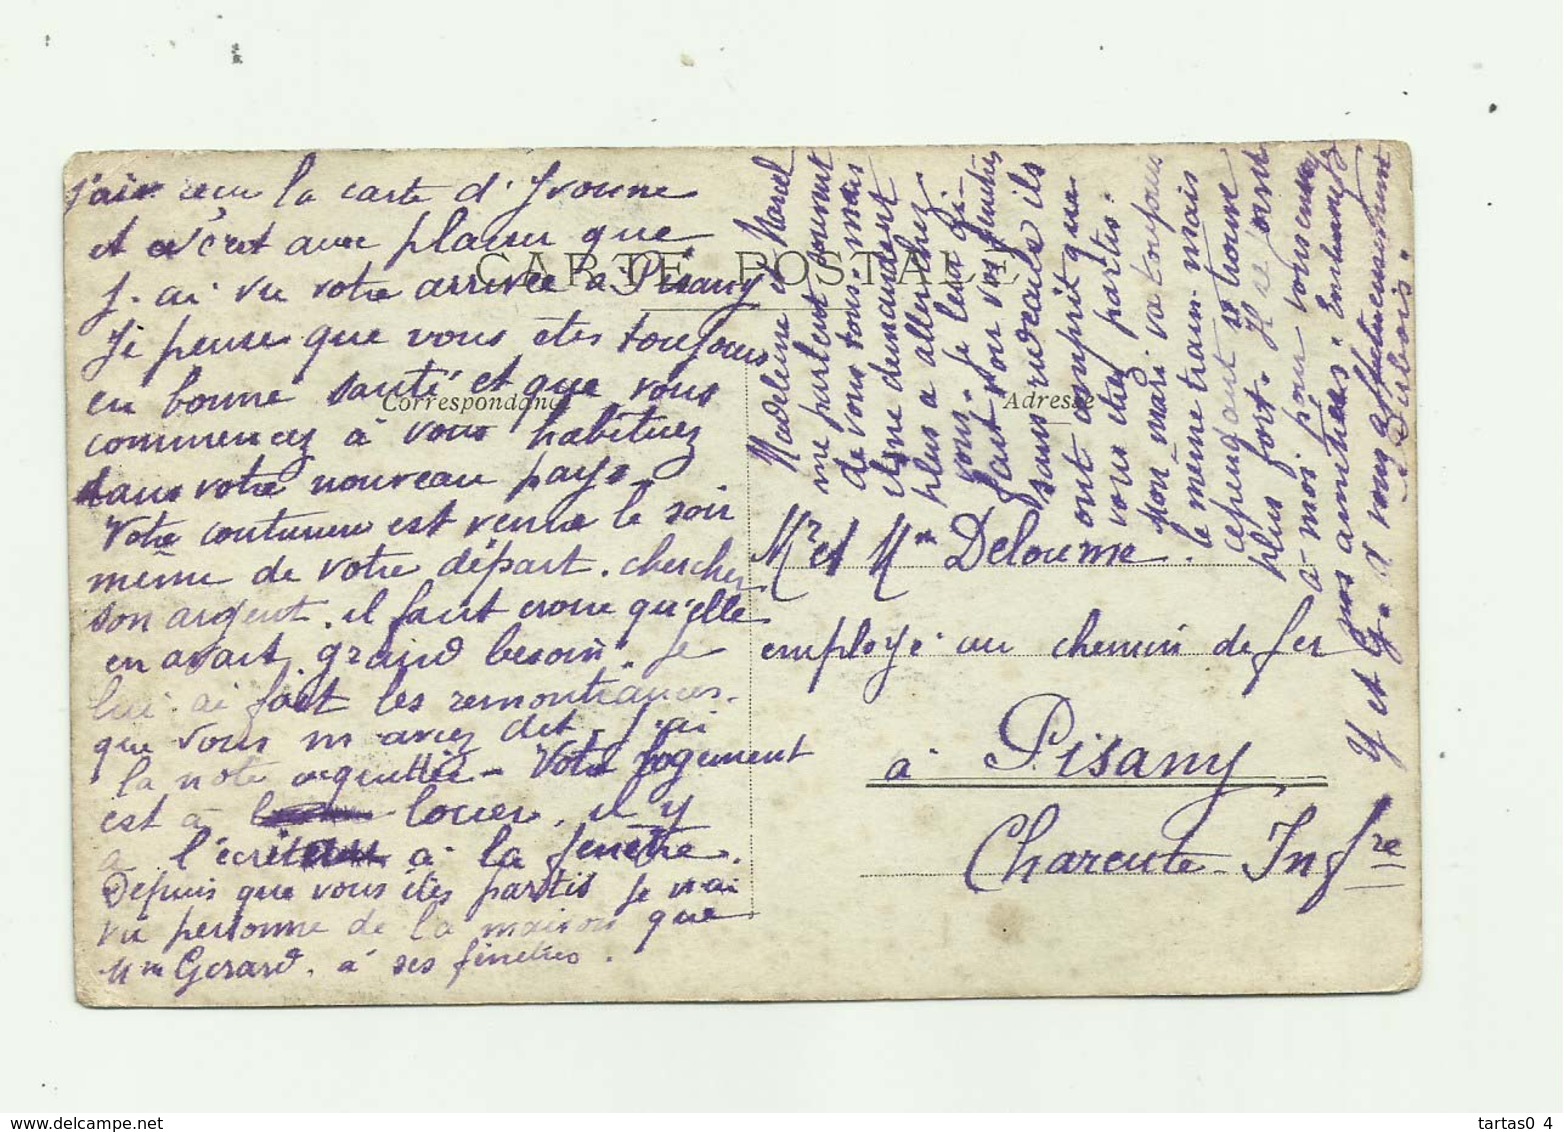 J'ai recu la carte d'Yvonne
et c'est avec plaisir que
j'ai vu votre arrivée à Pisany
Je pense que vous êtes toujours
en bonne santé et que vous
commencez à vous habituez
dans votre nouveau pays.
Votre couturiere est venue le soir
même de votre départ. chercher
son argent. il faut croire qu'elle
en avait grand besoin. Je
lui ai fait les remontrances.
que vous m'aviez dit. J'ai
la note acquittée - Votre logement
est à louer. il y
a l'écriteau à la fenêtre.
Depuis que vous êtes partis je n'ai
vu personne de la maison que
Mme Gerard. à ses fenêtres.
CARTE POSTALE
Correspondance
Adresse
Madeleine et Marcel
me parlent souvent
de vous tous. mais
ne demandent
plus a aller chez
vous. Je leur ai
fait voir vos fenêtres
sans rideaux ils
ont compris que
vous étes partis.
mon mari va toujours
le même train. mais
cependant se trouve
plus fort. Il se joint
a moi pour vous envoyer
nos amitiés. Embrassez
Y et G. a vous affectueusement
Dubois.
Mr et Mme Deloume
employé au chemin de fer
à Pisany
Charente Infre
tartas0 4